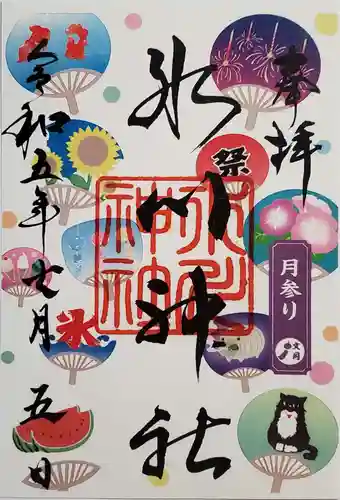 奉拝
月参り
文月
祭
氷川神社
氷川神社
氷
令和五年七月五日